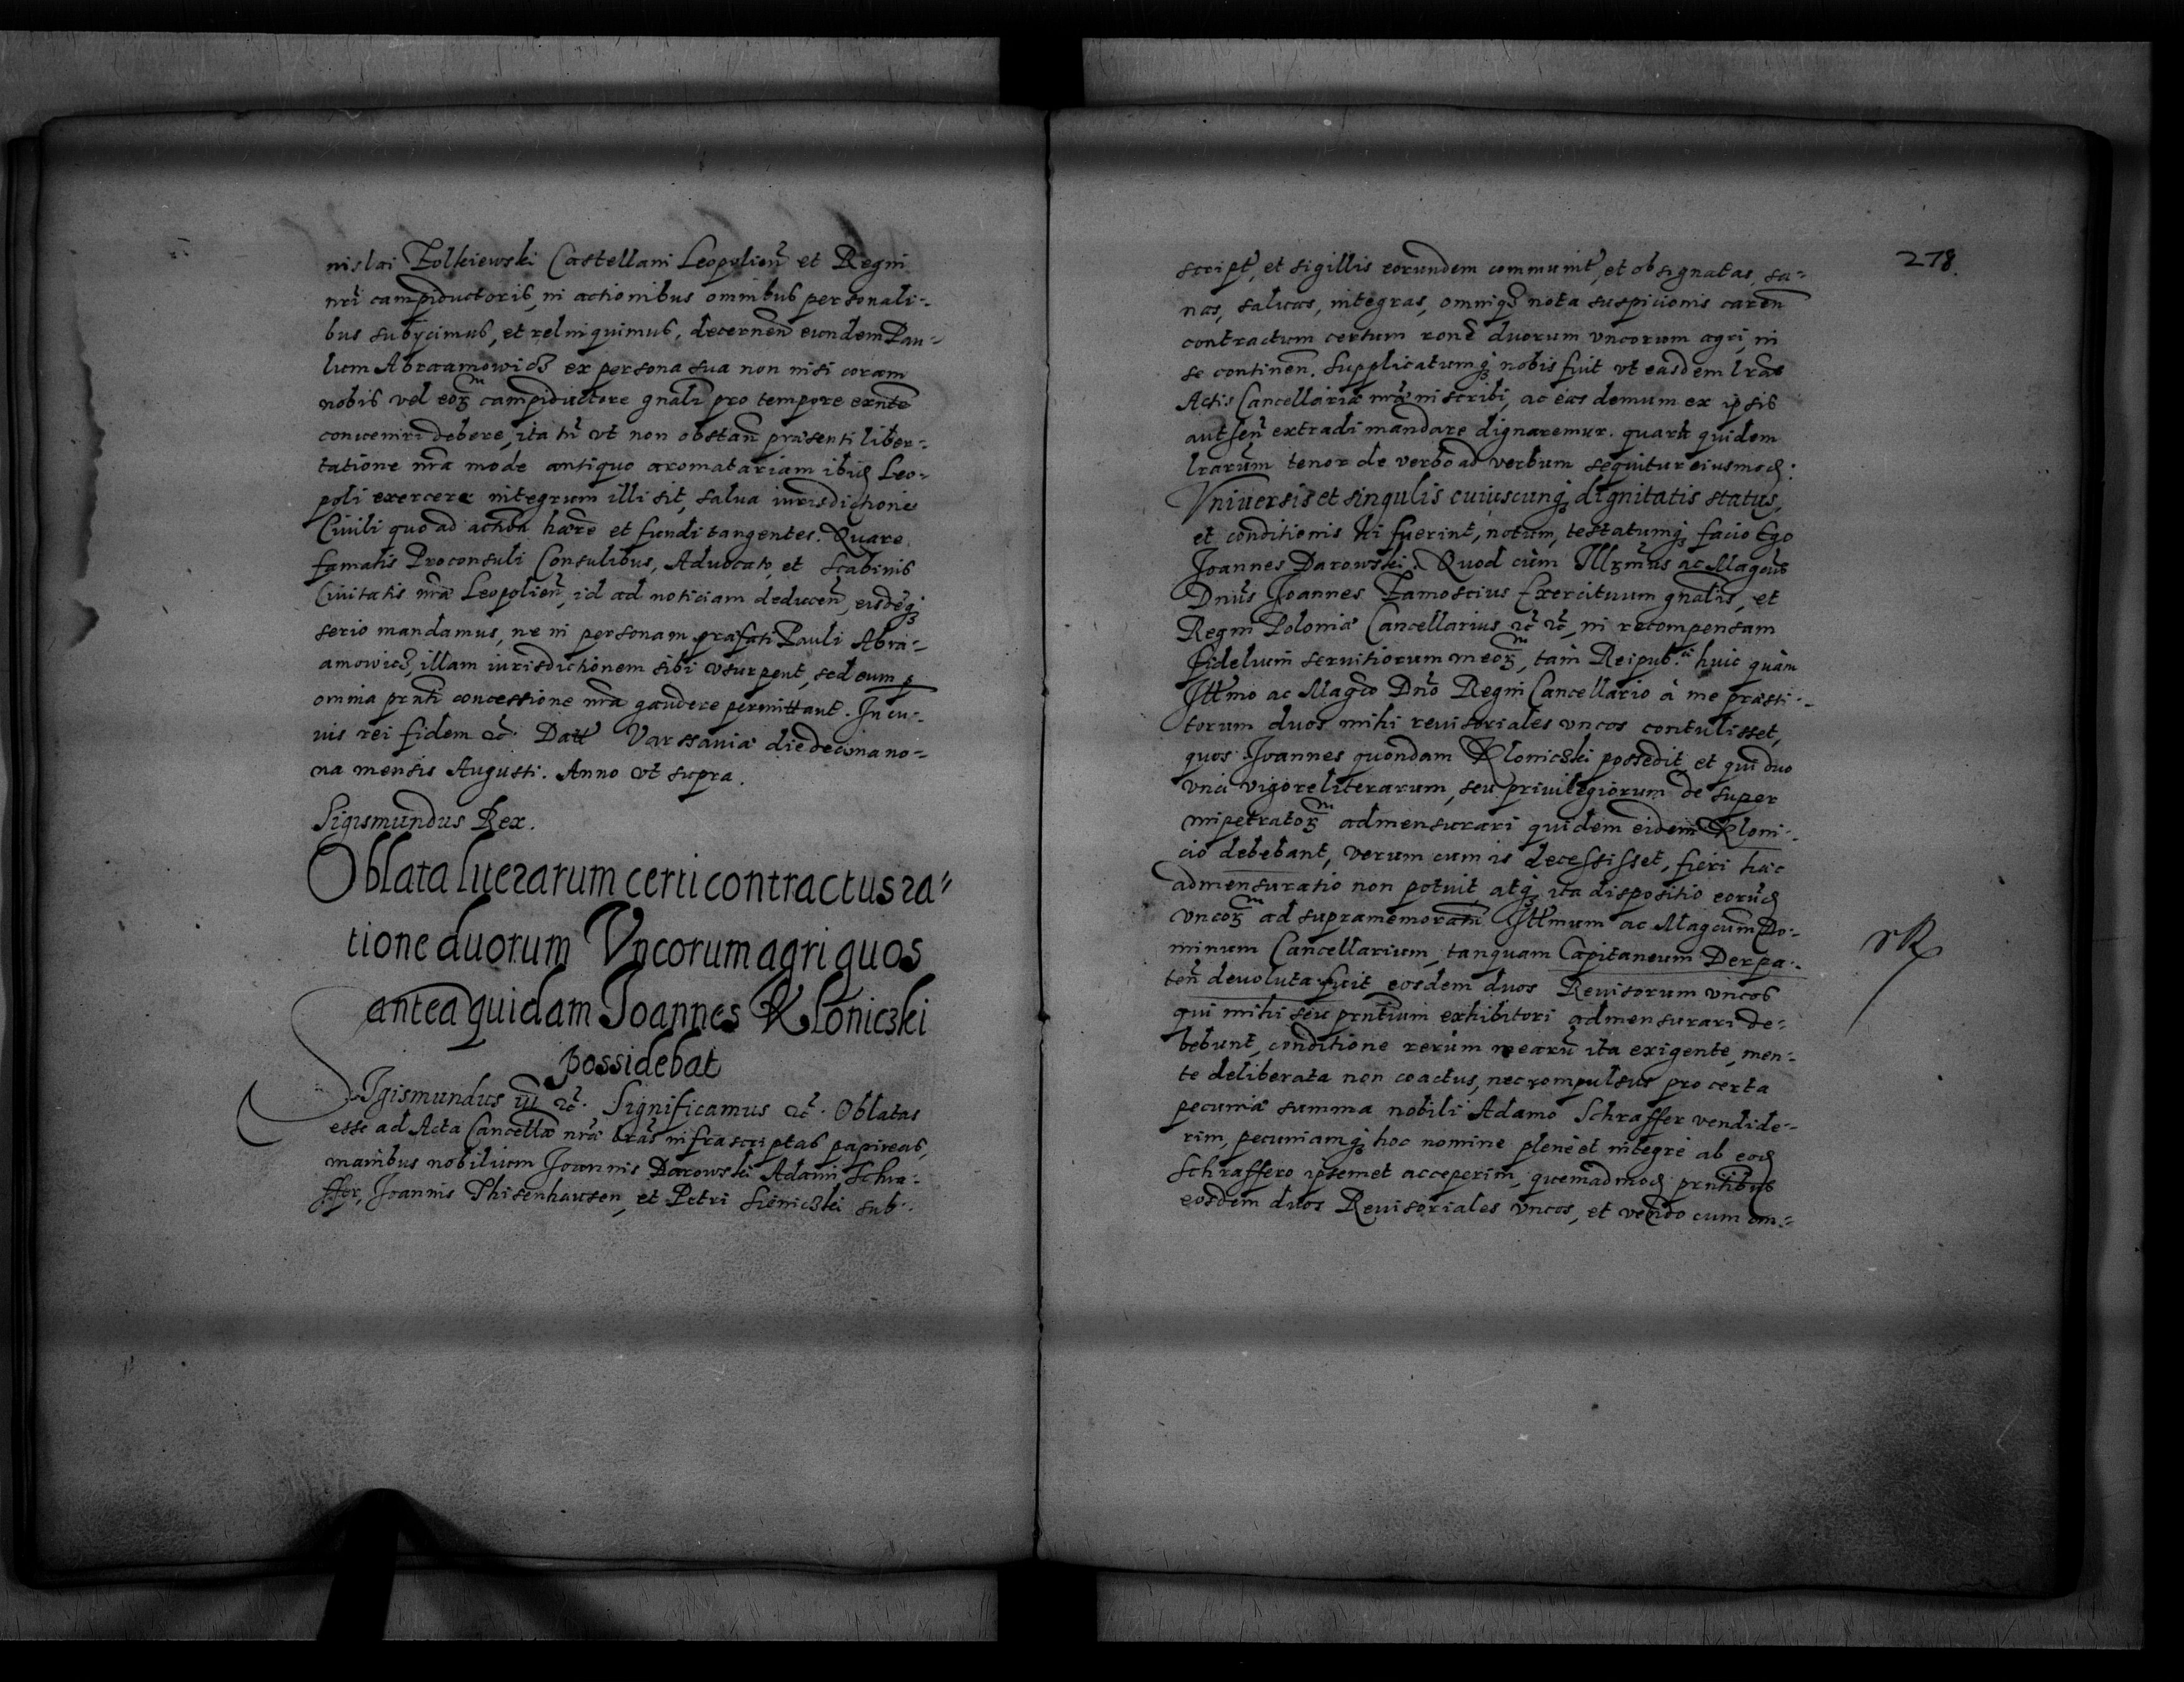 nislai Zolkiewski Castellani Leopolien̄ et Regni
nr̄i campiductoris, in actionibus omnibus personali-
bus subijcimus, et relinquimus, decernen̄ eundem Pau-
lum Abraamowicz ex persona sua non nisi coram
nobis vel eorū campiductore gn̄ali pro tempore exn̄te
conveniri debere, ita tn̄ vt non obstan̄ præsenti liber-
tatione nr̄a mode antiquo aromatariam ibid Leo-
poli exercere integrum illi sit, salua iurisdictione
Ciuili quo ad action̄ hære et fundi tangentes. Quare
famatis Proconsuli Consulibus, Aduocato, et Scabinis
Ciuitatis nr̄æ Leopolien̄, id ad noticiam deducen̄, eisdēq3
serio mandamus, ne in personam præfati Pauli Abra-
amowicz, illam iurisdictionem sibi vsurpent, sed eum p
omnia prn̄ti concessione nr̄a gaudere permittant. In cu-
uis rei fidem etc. Datt Varssauiæ die decima no-
na mensis Augusti. Anno vt supra.
Sigismundus Rex.
Oblata literarum certi contractus ra-
tione duorum Vncorum agri quos
antea quidam Joannes Kloniczki
possidebat
Sigismundus iii etc. Significamus etc. Oblatas
esse ad Acta Cancellæ nr̄æ lr̄as infrascriptas papireas,
manibus nobilium Joannis Darowski Adami Schra-
ffer, Joannis Thisenhausen, et Petri Sieniczki sub-
278.
script, et sigillis eorundem communit, et obsignatas, sa-
nas, saluas, integras, omniq3 nota suspicionis caren̄
contractum certum ron̄e duorum vncorum agri, in
se continen̄. Supplicatumq3 nobis fuit vt easdem lr̄as
Actis Cancellariæ nr̄æ inscribi, ac eas demum ex ipsis
autsen̄ extradi mandare dignaremur. quarū quidem
lr̄arum tenor de verbo ad verbum sequitur eiusmod:
Vniuersis et singulis cuiuscunq3 dignitatis status,
et conditionis hi fuerint, notum, testatumq3 facio Ego
Joannes Darowski. Quod cùm Illr̄mus ac Magcūs
Dnūs Joannes Zamoscius Exercituum gn̄alis, et
Regni Poloniæ Cancellarius etc etc, in recompensam
fidelium seruitiorum meorū, tam Reipub.ci huic quàm
Illmo ac Magco Dn̄o Regni Cancellario à me præsti-
torum duos mihi reuisoriales vncos contulisset,
quos Joannes quondam Kloniczki possedit et qui duo
vnci vigore literarum, seu priuilegiorum de super
impetratorū admensurari quidem eidem Kloni-
cio debebant, verum cum is decessisset, fieri hæc
admensuratio non potuit, atq3 ita dispositio eorūd
vncorū ad supramemoratū Illmum ac Magcum Do-
minum Cancellarium, tanquam Capitaneum Derpa-
ten̄ deuoluta fuit eosdem duos Reuisorum vncos
qui mihi seu prn̄tium exhibitori admensurari de-
bebunt, conditione rerum mearū ita exigente, men-
te deliberata non coactus, nec compulsus pro certa
pecuniæ summa nobili Adamo Schraffer vendide-
rim, pecuniamq3 hoc nomine plenè et integrè ab eod
Schraffero ipsemet acceperim, quemadmod prn̄tibus
eosdem duos Reuisoriales vncos, et vendo cum om-